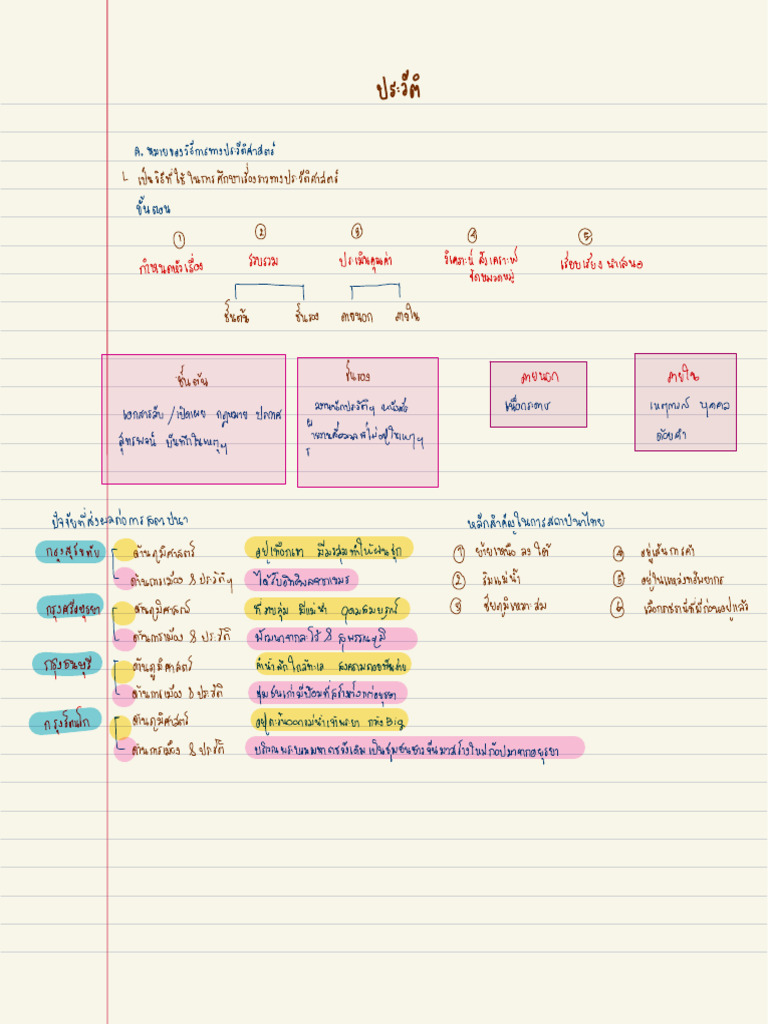 ประวัติ
ค. หมายของวิธีการทางประวัติศาสตร์
เป็นวิธีที่ใช้ในการศึกษาเรื่องราวทางประวัติศาสตร์
ขั้นตอน
① ② ③ ④ ⑤
กำหนดหัวเรื่อง รวบรวม ประเมินคุณค่า วิเคราะห์ สังเคราะห์ เรียบเรียง นำเสนอ
จัดหมวดหมู่
ชั้นต้น ชั้นรอง ภายนอก ภายใน
ชั้นต้น ชั้นรอง ภายนอก ภายใน
เอกสารลับ /เปิดเผย กฎหมาย ประกาศ
สุนทรพจน์ บันทึกในเหตุฯ
งานนักประวัติฯ หนังสือ
เนื้อกระดาษ
เหตุการณ์ บุคคล
ถ้อยคำ
ปัจจัยที่ส่งผลต่อการสถาปนา
กรุงสุโขทัย ด้านภูมิศาสตร์ อยู่เทือกเขา มีมรสุมทำให้ฝนชุก
ด้านการเมือง & ประวัติฯ ได้รับอิทธิพลจากเขมร
กรุงศรีอยุธยา ด้านภูมิศาสตร์ ที่ราบลุ่ม มีแม่น้ำ อุดมสมบูรณ์
ด้านการเมือง & ประวัติ พัฒนาจากละโว้ & สุพรรณภูมิ
กรุงธนบุรี ด้านภูมิศาสตร์ ลำน้ำลึก ใกล้ทะเล
ด้านการเมือง & ประวัติ ชุมชนเก่ามีป้อมที่สร้างตั้งแต่อยุธยา
กรุงรัตนโก ด้านภูมิศาสตร์ อยู่ตะวันออกแม่น้ำเจ้าพระยา
ด้านการเมือง & ประวัติ
หลักสำคัญในการสถาปนาไทย
① ย้ายเหนือ ลง ใต้
② ริมแม่น้ำ
③ ชัยภูมิเหมาะสม
④ อยู่เส้นการค้า
⑤ อยู่ในแหล่งทรัพยากร
⑥